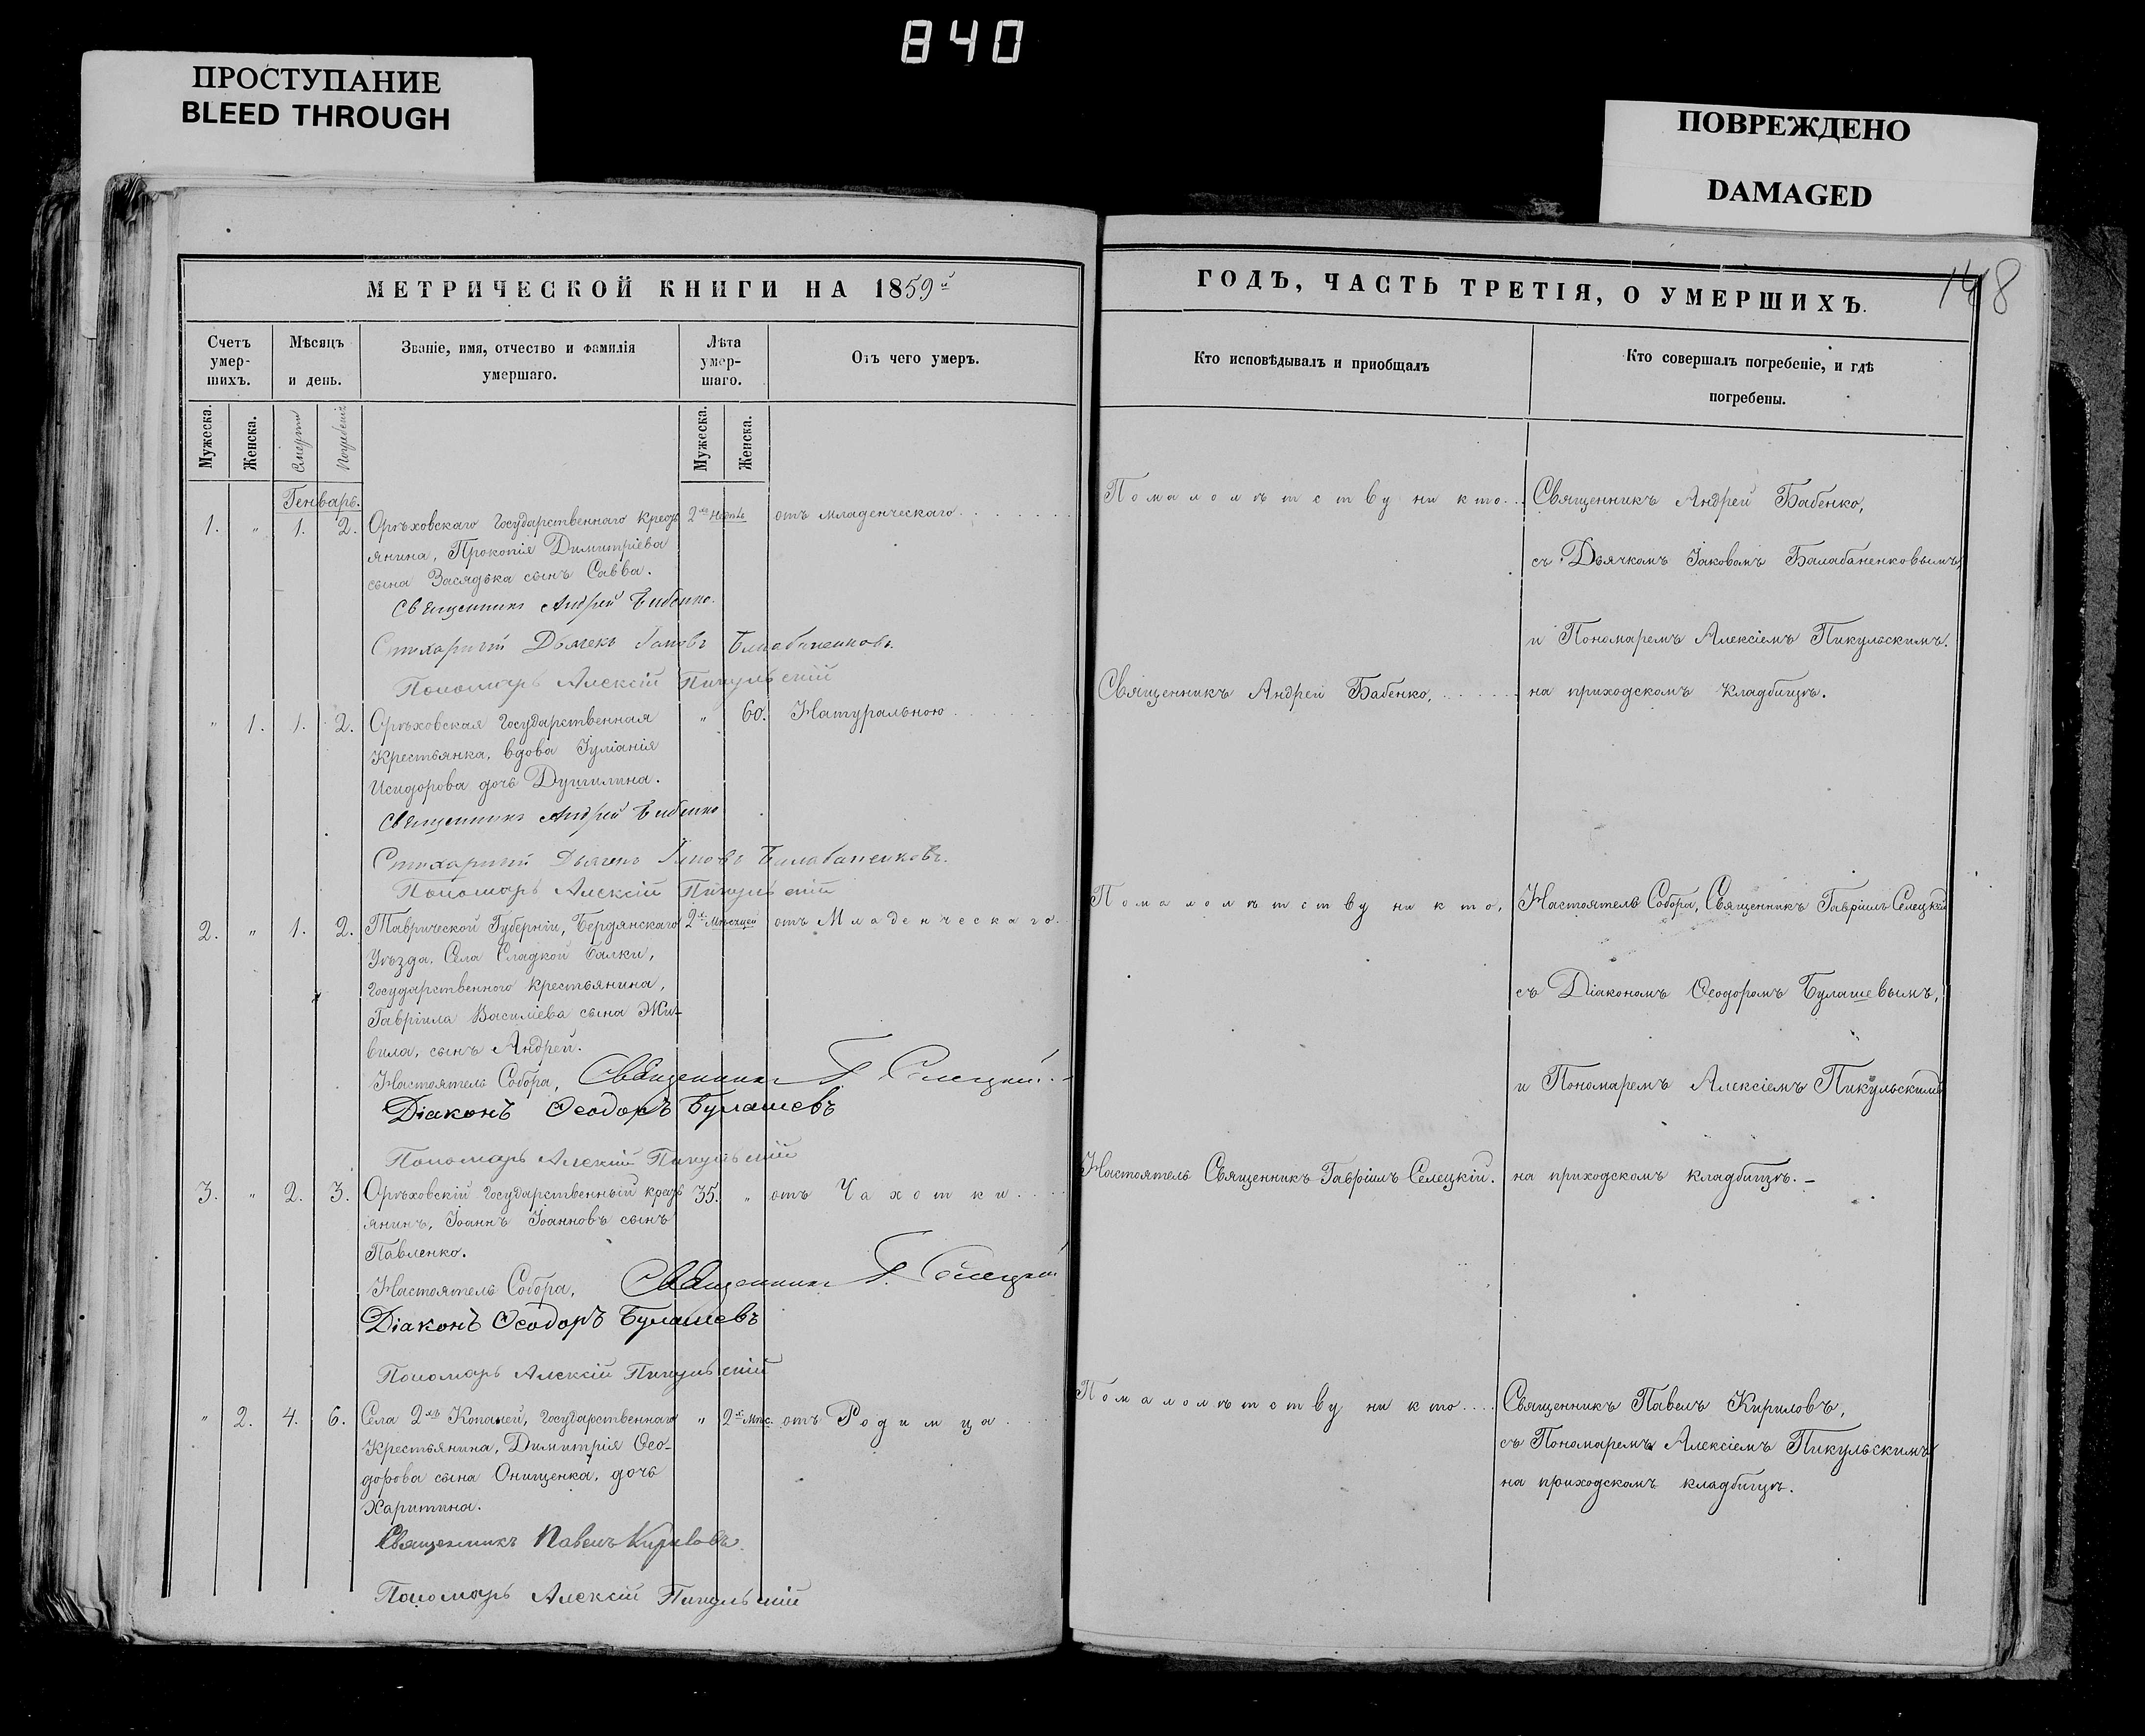 840
ПРОСТУПАНИЕ
BLEED THROUGH
ПОВРЕЖДЕНО
DAMAGED
МЕТРИЧЕСКОЙ КНИГИ НА 1859й
Счетъ умер-шихъ.
Мѣсяцъ и день.
Званіе, имя, отчество и фамилія умершаго.
Лѣта умер-шаго.
Отъ чего умеръ.
Мужеска.
Женска.
Смерти
Погребенія
Мужеска.
Женска.
Генварь.
1. " 1. 2. Орѣховскаго Государственнаго Крест 2хъ недѣль отъ младенческаго
янина, Прокопія Димитріева
сына Засядька сынъ Савва.
Священникъ Андрей Бабенко.
Стихарный Дьячекъ Іаковъ Балабаненковъ.
Пономарь Алексій Пикульскій
" 1. 1. 2. Орѣховская Государственная " 60. Натуральною
Крестьянка, вдова Іуліанія
Исидорова дочь
Священникъ Андрей Бабенко
Стихарный Дьячекъ Іаковъ Балабаненковъ.
Пономарь Алексій Пикульскій
2. " 1. 2. Таврической Губерніи, Бердянскаго 2хъ Мѣсяцей отъ Младенческаго.
Уѣзда, Села Сладкой балки,
Государственного крестьянина,
Гавріила Василіева сына Жи-
вила, сынъ Андрей.
Настоятель Собора, Священникъ Г. Селецкій.
Діаконъ Ѳеодоръ Булашевъ
Пономарь Алексій Пикульскій
3. " 2. 3. Орѣховскій Государственный крест 35. " отъ Чахотки
янинъ, Іоаннъ Іоанновъ сынъ
Павленко.
Настоятель Собора, Священникъ Г. Селецкій
Діаконъ Ѳеодоръ Булашевъ
Пономарь Алексій Пикульскій
" 2. 4. 6. Села 2хъ Копаней, Государственнаго " 2х Мѣс. отъ Родимца
Крестьянина, Димитрія Ѳео-
дорова сына Онищенка, дочь
Харитина.
Священникъ Павелъ Кириловъ.
Пономарь Алексій Пикульскій
ГОДЪ, ЧАСТЬ ТРЕТІЯ, О УМЕРШИХЪ.
148
Кто исповѣдывалъ и пріобщалъ
Кто совершалъ погребеніе, и гдѣ
погребены.
По малолѣтству никто. Священникъ Андрей Бабенко,
съ Дьячкомъ Іаковомъ Балабаненковымъ,
и Пономаремъ Алексіемъ Пикульскимъ.
Священникъ Андрей Бабенко, на приходскомъ кладбищѣ.
По малолѣтству никто, Настоятель Собора, Священникъ Гавріилъ Селецкій
съ Діакономъ Ѳеодоромъ Булашевымъ,
и Пономаремъ Алексіемъ Пикульскимъ
Настоятель Священникъ Гавріилъ Селецкій. на приходскомъ кладбищѣ.
По малолѣтству никто Священникъ Павелъ Кириловъ,
съ Пономаремъ Алексіемъ Пикульскимъ
на приходскомъ кладбищѣ.